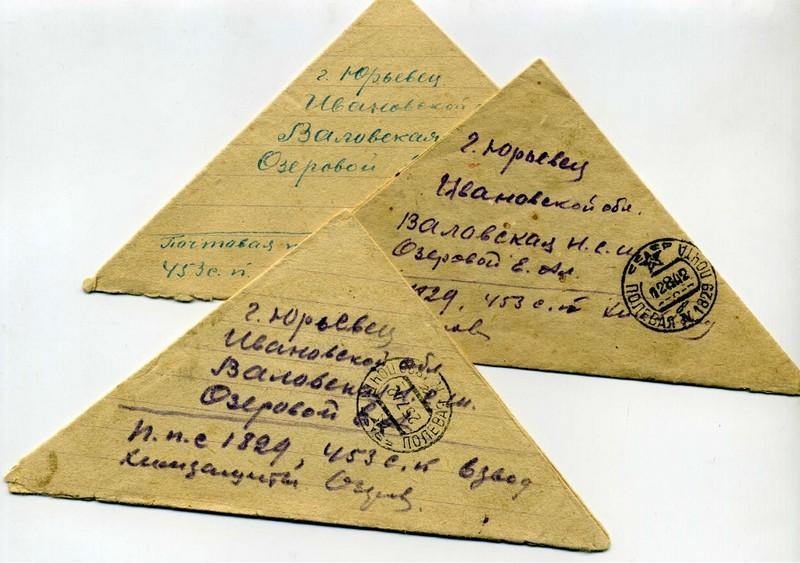 г. Юрьевец
Ивановской
Валовская
Озеровой
Почтовая
453 с. п.
г. Юрьевец
Ивановской обл.
Валовская н. с. ш.
Озеровой Е. Ал.
1829, 453 с. п
СССР
ПОЛЕВАЯ ПОЧТА
12 8 42
1829
г. Юрьевец
Ивановской обл
Валовская н. с. ш.
Озеровой Е.
П. п. с 1829, 453 с. п взвод
химзащиты Озеров.
ПОЛЕВАЯ